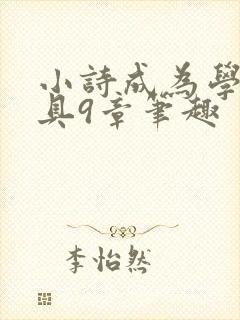 小詩成為學
具9章筆趣
李怡然